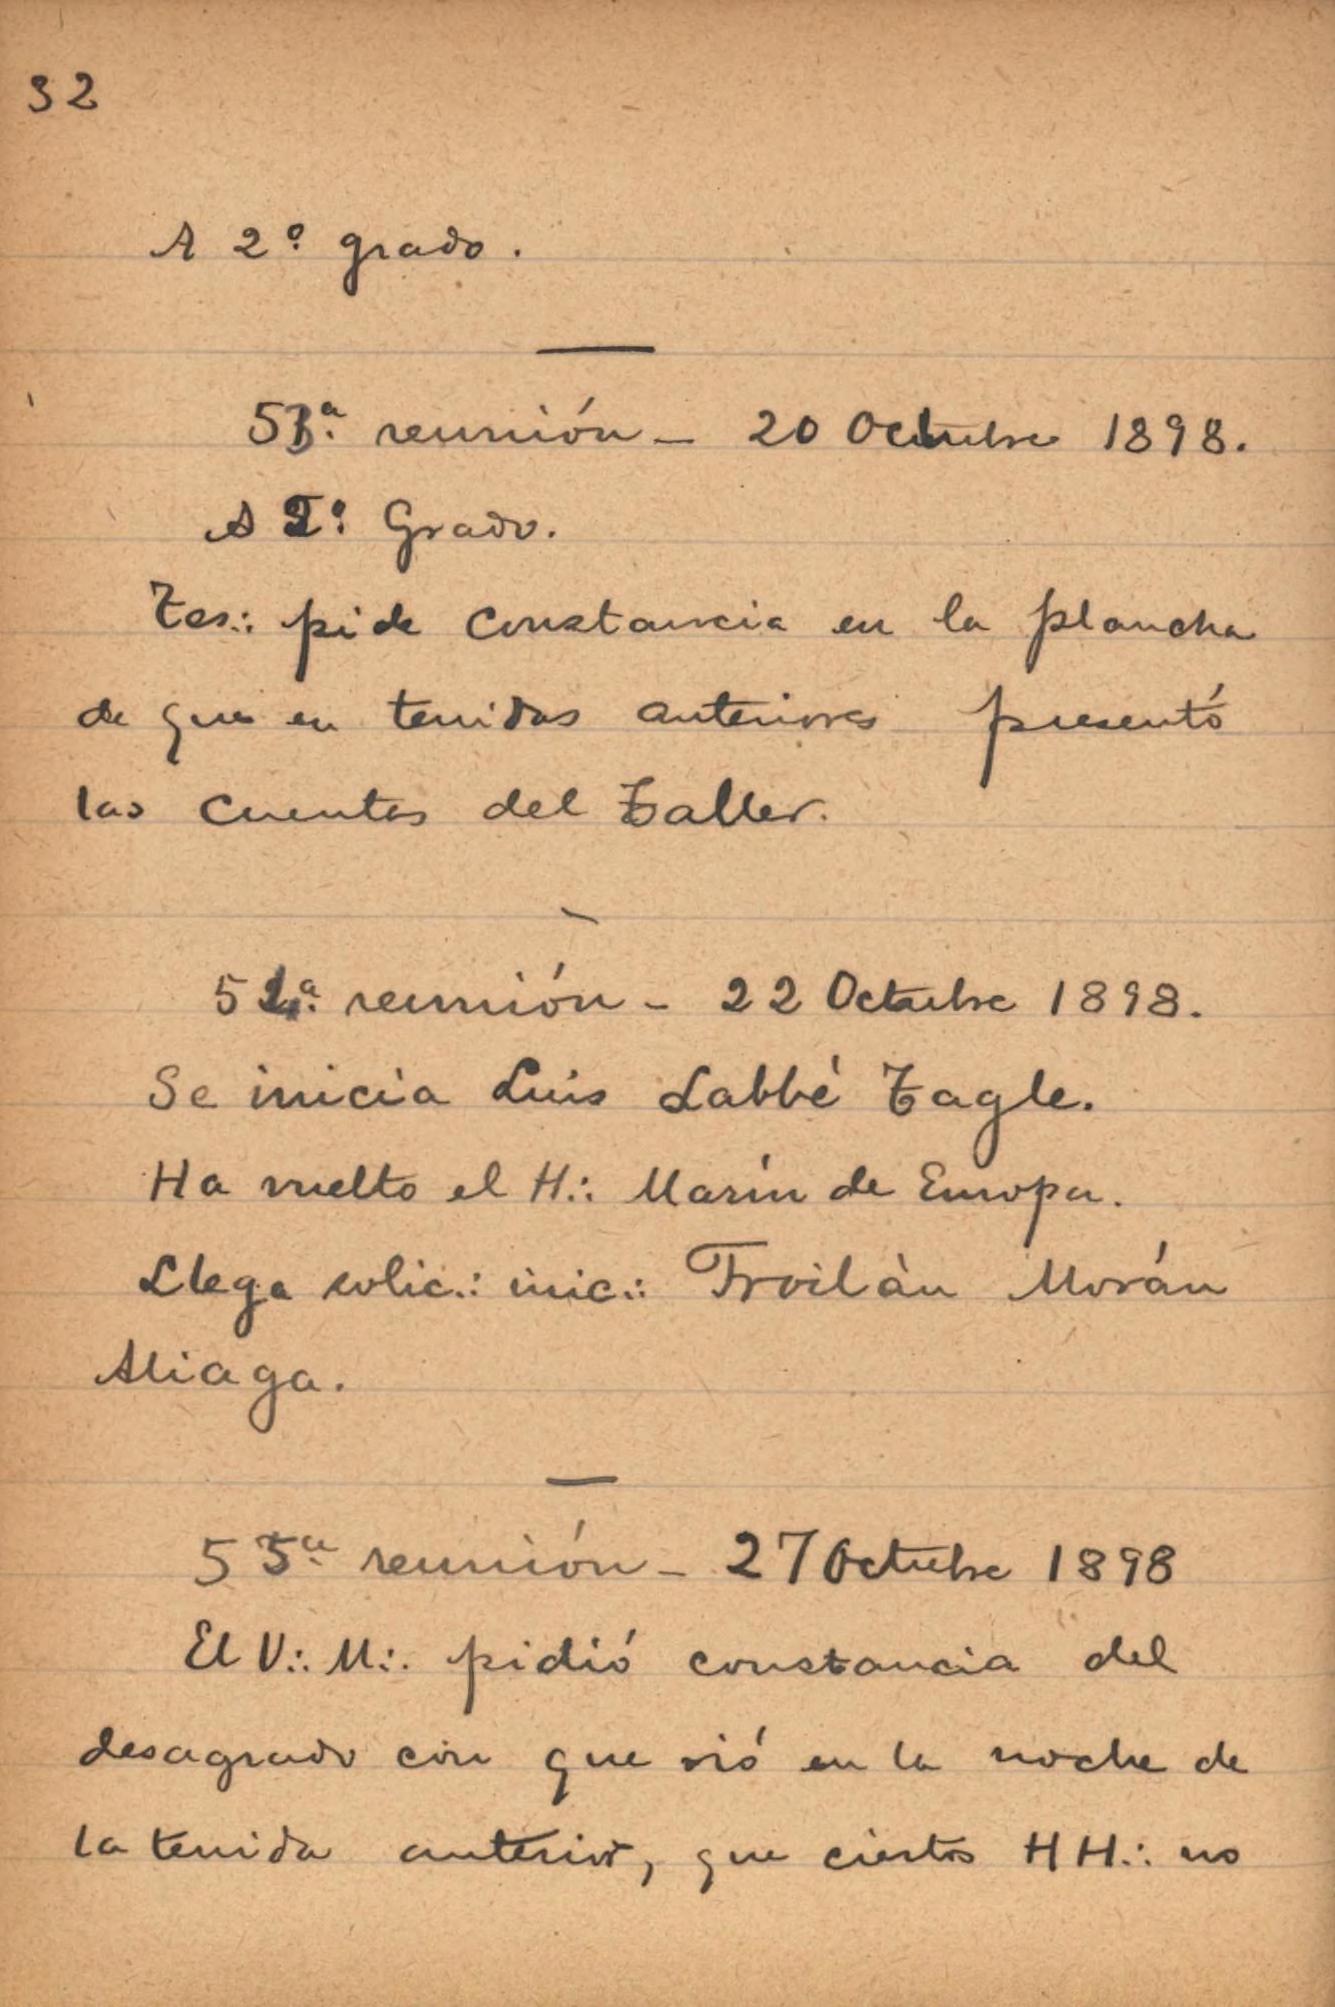 32
A 2º grado.
53ª reunión - 20 Octubre 1898.
A 2º Grado.
Tes∴ pide constancia en la plancha
de que en tenidas anteriores presentó
las cuentas del Taller.
54ª reunión - 22 Octubre 1898.
Se inicia Luis Labbé Tagle.
Ha vuelto el H∴ Marín de Europa.
Llega solic∴ inic∴ Froilán Morán
Aliaga.
55ª reunión - 27 Octubre 1898
El V∴ M∴ pidió constancia del
desagrado con que vió en la noche de
la tenida anterior, que ciertos HH∴ no